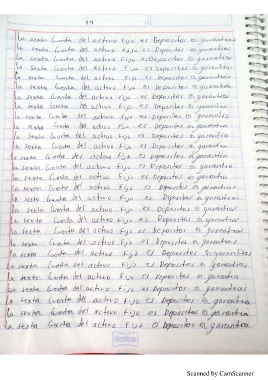 La sexta Cuenta del activo fijo es Depositos en garantias
La sexta Cuenta del activo fijo es Depositos en garantias
La sexta Cuenta del activo fijo es Depositos en garantias
La sexta Cuenta del activo fijo es Depositos en garantias
La sexta Cuenta del activo fijo es Depositos en garantias
La sexta Cuenta del activo fijo es Depositos en garantias
La sexta Cuenta del activo fijo es Depositos en garantias
La sexta Cuenta del activo fijo es Depositos en garantias
La sexta Cuenta del activo fijo es Depositos en garantias
La sexta Cuenta del activo fijo es Depositos en garantias
La sexta Cuenta del activo fijo es Depositos en garantias
La sexta Cuenta del activo fijo es Depositos en garantias
La sexta Cuenta del activo fijo es Depositos en garantias
La sexta Cuenta del activo fijo es Depositos en garantias
La sexta Cuenta del activo fijo es Depositos en garantias
La sexta Cuenta del activo fijo es Depositos en garantias
La sexta Cuenta del activo fijo es Depositos en garantias
La sexta Cuenta del activo fijo es Depositos en garantias
La sexta Cuenta del activo fijo es Depositos en garantias
La sexta Cuenta del activo fijo es Depositos en garantias
La sexta Cuenta del activo fijo es Depositos en garantias
La sexta Cuenta del activo fijo es Depositos en garantias
La sexta Cuenta del activo fijo es Depositos en garantia
La sexta Cuenta del activo fijo es Depositos en garantias
La sexta Cuenta del activo fijo es Depositos en garantias
La sexta Cuenta del activo fijo es Depositos en garantia
Scanned by CamScanner